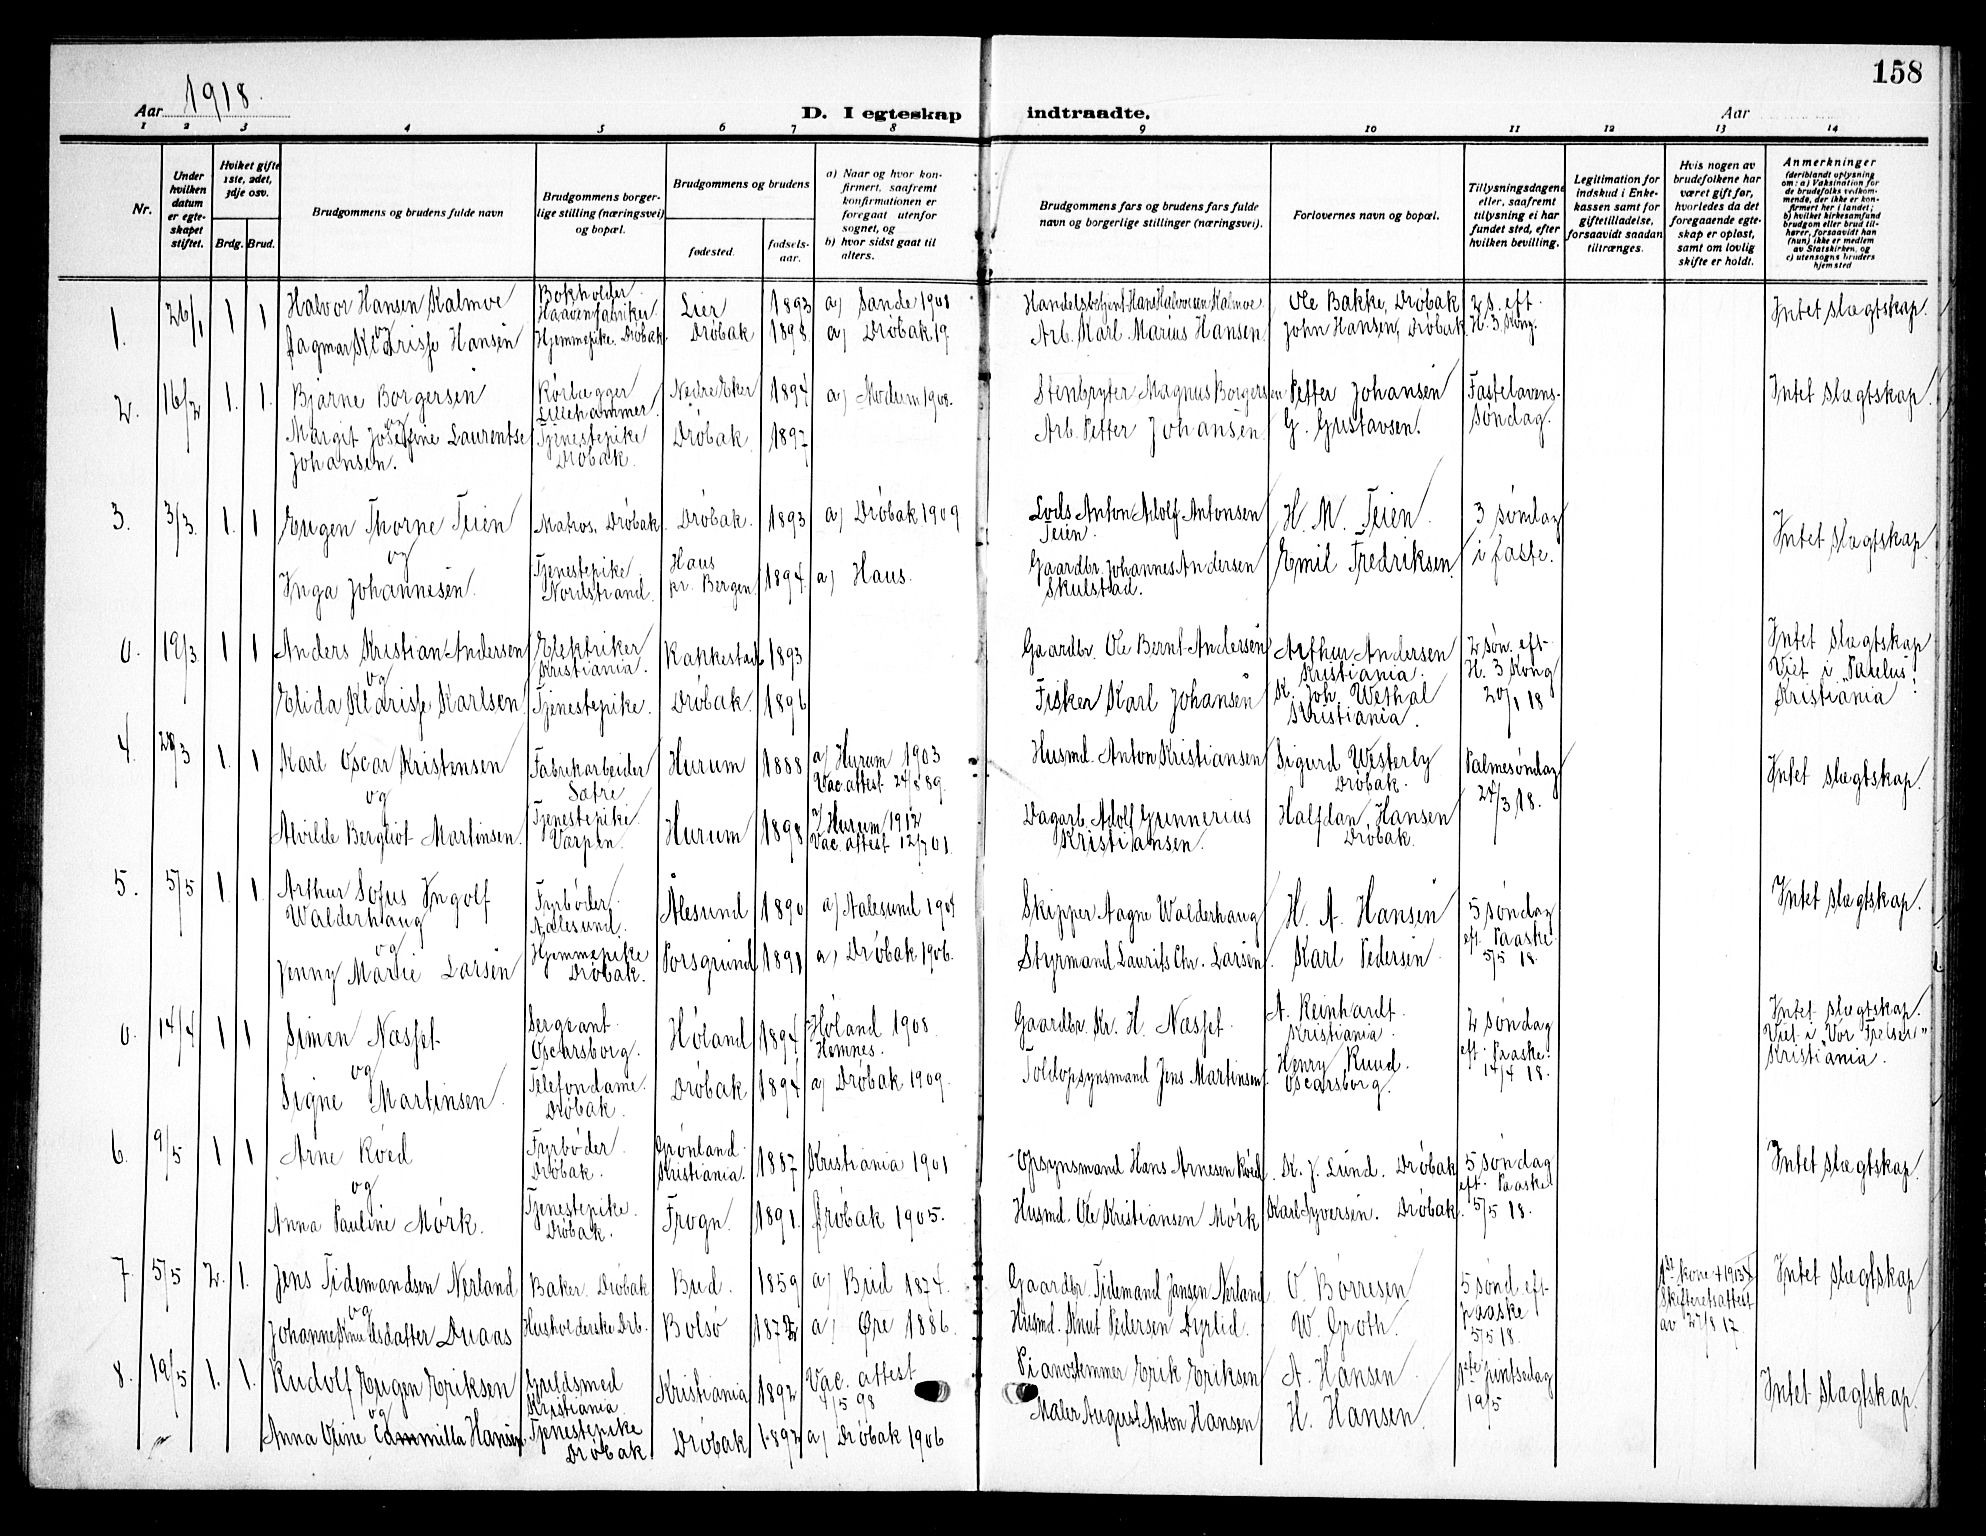 158
Aar 1918. D. I egteskap indtraadte. Aar
1 2 3 4 5 6 7 8 9 10 11 12 13 14
Nr.
Under hvilken datum er egteskapet stiftet.
Hviket gifte 1ste, 2det, 3dje osv.
Brdg. Brud.
Brudgommens og brudens fulde navn
Brudgommens borgerlige stilling (næringsvei) og bopæl.
Brudgommens og brudens
fødested. fødsels-aar.
a) Naar og hvor konfirmert, saafremt konfirmationen er foregaat utenfor sognet, og
b) hvor sidst gaat til alters.
Brudgommens fars og brudens fars fulde navn og borgerlige stillinger (næringsvei).
Forlovernes navn og bopæl.
Tillysningsdagene eller, saafremt tillysning ei har fundet sted, efter hvilken bevilling.
Legitimation for indskud i Enkekassen samt for giftetilladelse, forsaavidt saadan tiltrænges.
Hvis nogen av brudefolkene har været gift før, hvorledes da det foregaaende egteskap er opløst, samt om lovlig skifte er holdt.
Anmerkninger (deriblandt oplysning om: a) Vaksination for de brudefolks vedkommende, der ikke er konfirmert her i landet; b) hvilket kirkesamfund brudgom eller brud tilhører, forsaavidt han (hun) ikke er medlem av Statskirken, og c) utensogns bruders hjemsted
1. 26/1 1 1 Halvor Hansen Kalmoe Bokholder Haavenfabriker. Lier 1893 a) Sande 1908 Handelsbetjent Hans Halvorsen Kalmoe Ole Bakke, Drøbak 2 s. eft. H. 3 Kong. Intet slægtskap.
og
Dagmar Klarisse Hansen Hjemmepike. Drøbak. Drøbak 1898. a) Drøbak 19 Arb. Karl Marius Hansen John Hansen, Drøbak
2. 16/2 1. 1. Bjarne Borgersen Rørlægger Lillehammer. Nedre Eker 1894 a) Modum 1908. Stenbryter Magnus Borgersen Petter Johansen Fastelavens-søndag. Intet slægtskap
og
Margit Josefine Laurentse Johansen. Tjenestepike Drøbak. Drøbak. 1897 Arb. Petter Johansen G. Gustavsen.
3. 3/3 1. 1 Eugen Thorne Teien Matros. Drøbak. Drøbak. 1893 a) Drøbak 1909 Lods Anton Adolf Antonsen Teien. H. M. Teien. 3 søndag i faste. Intet slægtskap
og
Inga Johannesen. Tjenestepike Nordstrand. Haus pr. Bergen. 1894 a) Haus. Gaardbr. Johannes Andersen Skulstad. Emil Fredriksen.
0. 19/3 1 1 Anders Kristian Andersen Elektriker Kristiania. Rakkestad 1893 Gaardbr. Ole Bernt Andersen Arthur Andersen Kristiania. 2 søn. eft. H. 3 Kong 20/1 18 Intet slægtskap Viet i "Paulus" Kristiania.
og
Elida Klarisse Karlsen. Tjenestepike. Drøbak. 1896 Fisker Karl Johansen K. Joh. Wethal Kristiania.
4. 28/3 1. 1 Karl Oscar Kristensen Fabrikarbeider Sætre Hurum 1888 a) Hurum 1903 Vac. attest 24/8 89. Husmd. Anton Kristiansen Sigurd Westerby Drøbak. Palmesøndag 24/3 18. Intet slægtskap
og
Alvilde Bergliot Martinsen. Tjenestepike Varpen. Hurum 1898 a) Hurum 1912 Vac. attest 12/7 01. Dagarb. Adolf Gunnerius Kristiansen. Halfdan Hansen Drøbak.
5. 5/5 1. 1. Arthur Sofus Ingolf Walderhaug Fyrbøder. Aalesund. Ålesund 1890 a) Aalesund 1904 Skipper Aagne Walderhaug H. A. Hansen 5 søndag eft. Paaske 5/5 18. Intet slægtskap.
og
Jenny Marie Larsen Hjemmepike Drøbak. Porsgrund 1891 a) Drøbak 1906. Styrmand Laurits Chr. Larsen. Karl Pedersen
0. 14/4 1 1 Simen Næsset Sergeant. Oscarsborg. Høland 1894 Høland 1908 Hemnes. Gaardbr. Kr. H. Næsset. A. Reinhardt. Kristiania. 2 søndag eft. Paaske. 14/4 18. Intet slægtskap. Viet i "Vor Frelser" Kristiania.
og
Signe Martinsen. Telefondame. Drøbak. Drøbak 1894 a) Drøbak 1909. Toldopsynsmand Jens Martinsen. Henry Ruud. Oscarsborg.
6. 9/5 1 1 Arne Røed Fyrbøder. Drøbak. Grønland. Kristiania. 1887 Kristiania 1901 Opsynsmand Hans Arnesen Røed K. J. Lund. Drøbak 5 søndag eft. Paaske 5/5 18. Intet slægtskap.
og
Anna Pauline Mørk. Tjenestepike. Drøbak. Frogn. 1891. Drøbak 1905. Husmd. Ole Kristiansen Mørk Karl Syversen. Drøbak.
7. 5/5 2. 1. Jens Tidemandsen Nerland Baker. Drøbak Bud. 1859 a) Bud 1874. Gaardbr. Tidemand Jansen Nerland O. Børresen 5 sønd eft. paaske 5/5 18. 1ste kone + 1903 Skifteretsattest av 27/8 17 Intet slægtskap
og
Johanne Knutsdatter Duaas Husholderske Drb. Bolsø 1872 a) Øre 1886. Husmd. Knut Pedersen Dyrlid. W. Groth.
8. 19/5 1. 1. Rudolf Eugen Eriksen Guldsmed Kristiania Kristiania 1892 Vac. attest 4/5 98 Pianostemmer Erik Eriksen A. Hansen 1ste Pintsedag 19/5 Intet slægtskap
og
Anna Oline Cammilla Hansen. Tjenestepike Drøbak Drøbak 1892 a) Drøbak 1906 Maler August Anton Hansen H. Hansen.